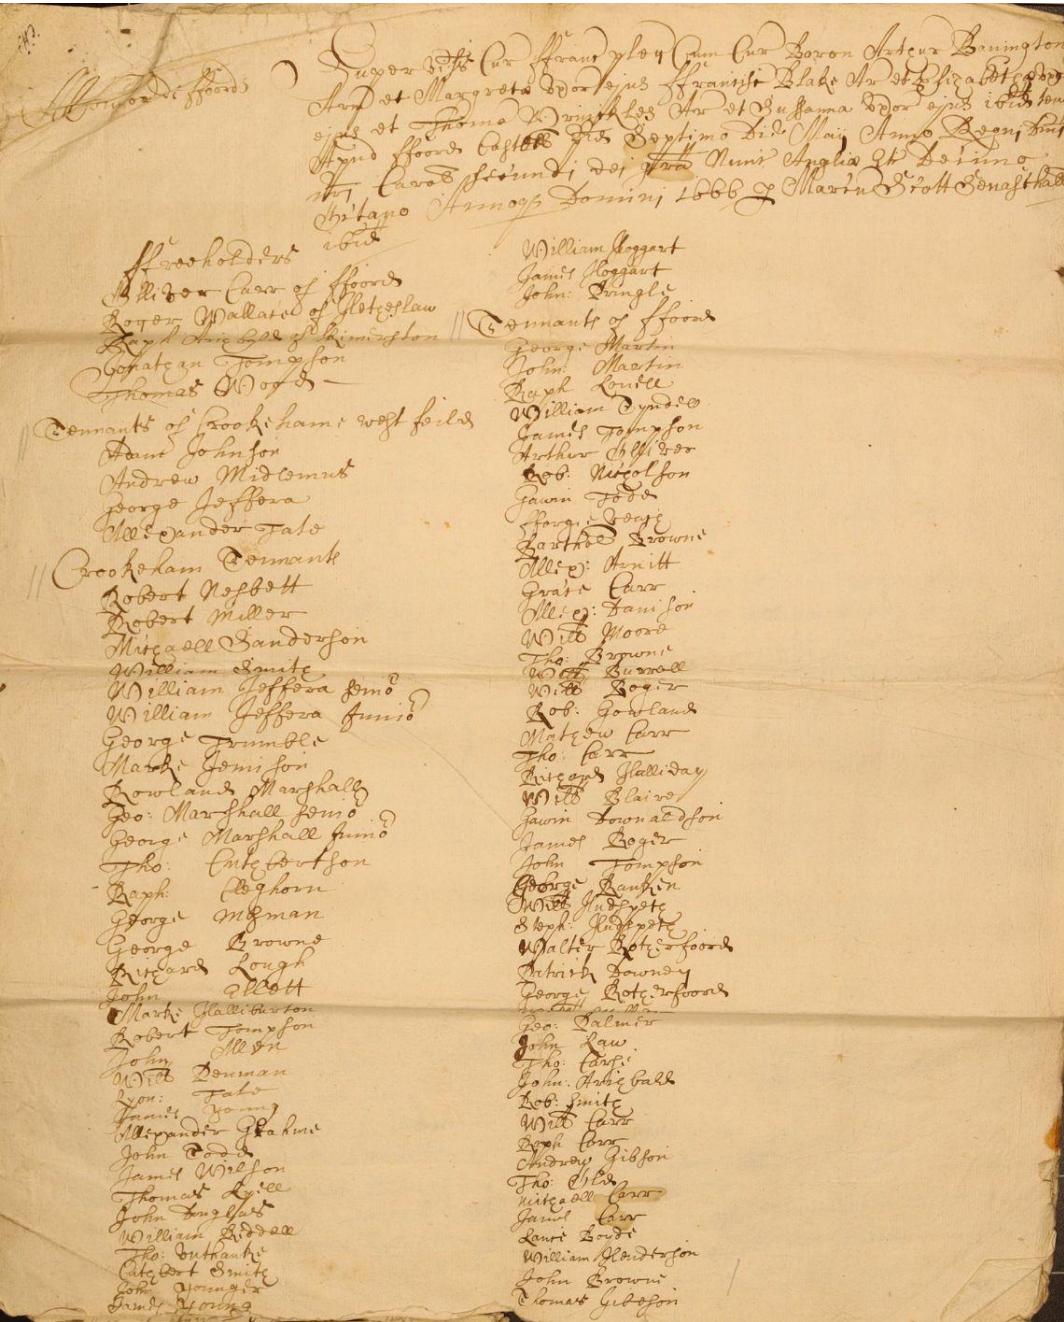 Super Vis Cur ffranc pleg Cum Cur Baron Arthur Babington
Ar et Margreta uxor ejus ffrancisi Blake Ar et Elizabetha uxor
ejus et Thome Ar et Sussanna uxor ejus ibid ten
Apud ffoord Castell Septimo Die Maij Anno Regni
Caroli secundi dei gra Nunc Angliæ &c Decimo
Octavo Annoq Domini 1666 p Scott Senasthall
ibid
ffreeholders
Olliver Carr of ffoord
Roger Wallace of Hetheslaw
Raph of Kimerston
Jonathan Tompson
Thomas Wood
Tennants of Crookehame west feild
Adam Johnson
Andrew Midlemus
George Jeffera
Allexander Tate
Crookeham Tennants
Robert Nesbett
Robert Miller
Michaell Sanderson
William Smith
William Jeffera senio
William Jeffera Junio
George Trumble
Marke Jemison
Rowland Marshall
Geo: Marshall senio
George Marshall Junio
Tho: Cuthbertson
Raph: Cleghorn
George
George Browne
Richard Lough
John Ellett
Marke Halliburton
Robert Tompson
John Allen
Will Penman
Tate
James Young
Allexander Grahme
John Todd
James Wilson
Thomas Kyell
John Douglass
William Reddell
Tho:
Cuthbert Smith
John Younger
James Young
William Hoggart
James Hoggart
John: Pringle
Tennants of ffoord
George Martin
John: Martin
Raph Lonell
William Tyndell
James Tompson
Arthur Olliver
Rob: Nicholson
Gawin Todd
Georgie
Barthol Browne
Allex: Arnitt
Grace Carr
Allex: Davison
Will Moore
Tho: Browne
Will Burrell
Will Roger
Rob: Gowland
Mathew Carr
Tho: Carr
Richard Halliday
Will Blaire
Gawin Downaldson
James Roger
John Tompson
George Ranken
Will Hudspeth
Steph: Hudspeth
Walter Rotherfoord
Patrick Downey
George Rotherfoord
Geo: Palmer
John Law
Tho: Carse
John: Archbald
Rob: Smith
Will Carr
Raph Carr
Andrew Gibson
Tho: Olld
Michaell Carr
James Carr
Lance Boyde
William Henderson
John Browne
Thomas Gibson